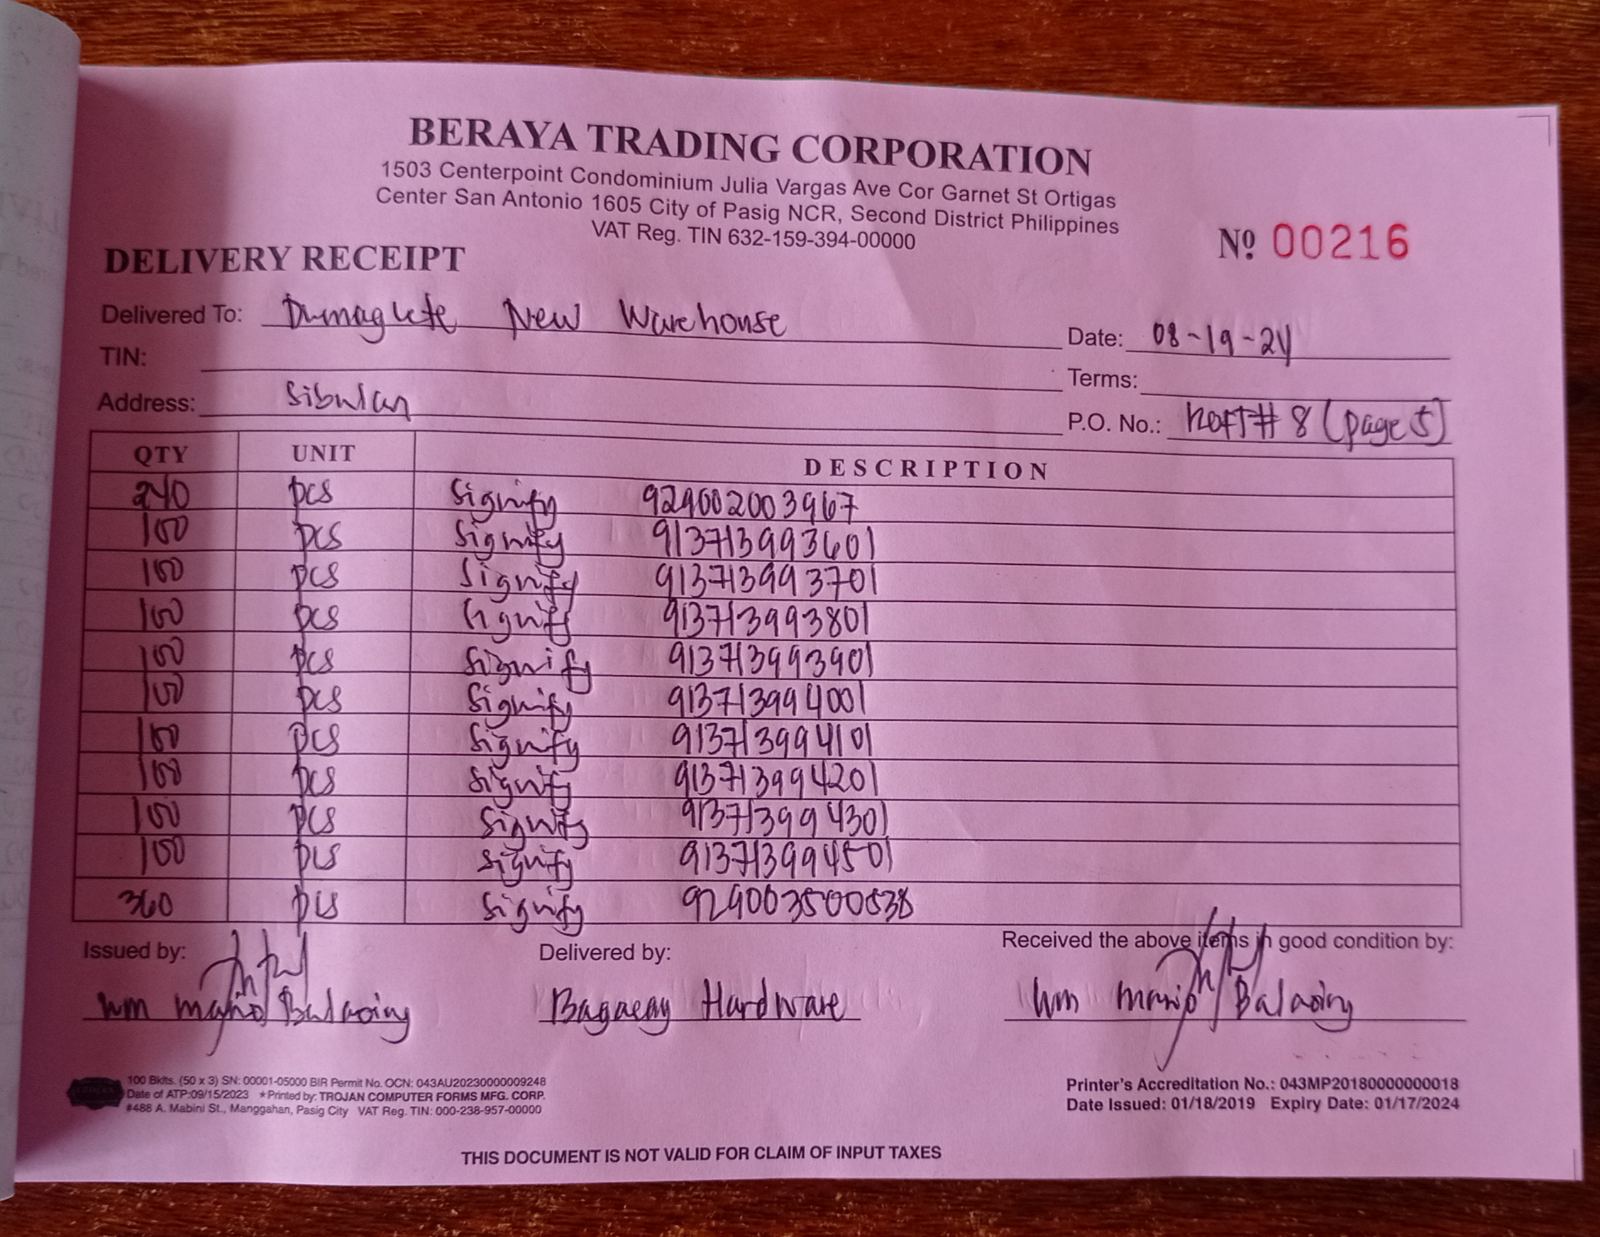 BERAYA TRADING CORPORATION
1503 Centerpoint Condominium Julia Vargas Ave Cor Garnet St Ortigas
Center San Antonio 1605 City of Pasig NCR, Second District Philippines
VAT Reg. TIN 632-159-394-00000
Nº 00216
DELIVERY RECEIPT
Delivered To: Dumaguete New Warehouse
Date: 08-19-24
TIN:
Terms:
Address: Sibulan
P.O. No.: # 8 (page 5)
QTY UNIT DESCRIPTION
240 pcs Signify 929002003967
100 pcs Signify 913713993601
100 pcs Signify 913713993701
100 pcs Signify 913713993801
100 pcs Signify 913713993901
100 pcs Signify 913713994001
100 pcs Signify 913713994101
100 pcs Signify 913713994201
100 pcs Signify 913713994301
100 pcs Signify 913713994501
360 pcs Signify 929003500538
Issued by:
Delivered by:
Received the above items in good condition by:
wm Balaoing
Hardware
wm Balaoing
100 Bklts. (50 x 3) SN: 00001-05000 BIR Permit No. OCN: 043AU20230000009248
Date of ATP:09/15/2023 *Printed by: TROJAN COMPUTER FORMS MFG. CORP.
#488 A. Mabini St., Manggahan, Pasig City VAT Reg. TIN: 000-238-957-00000
Printer's Accreditation No.: 043MP20180000000018
Date Issued: 01/18/2019 Expiry Date: 01/17/2024
THIS DOCUMENT IS NOT VALID FOR CLAIM OF INPUT TAXES